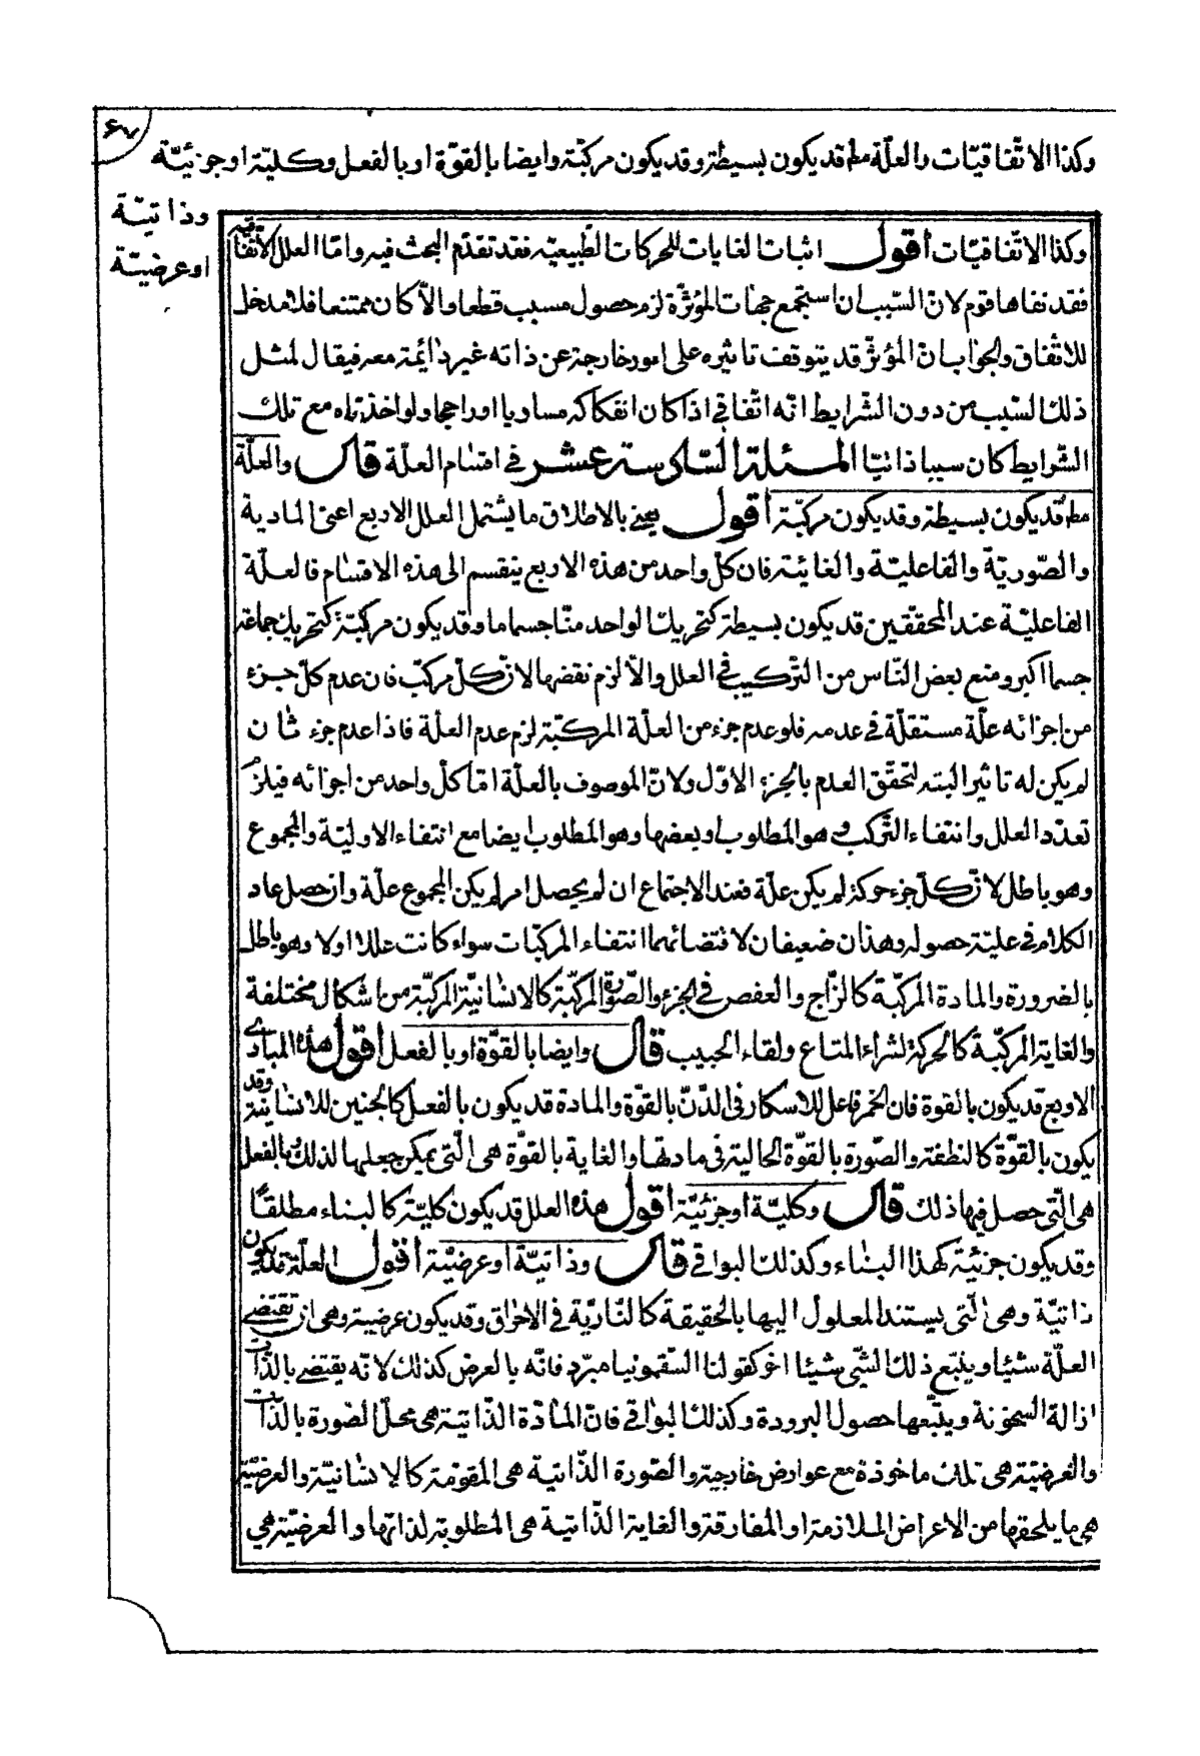 ۶۷
وكذا الاتّفاقيّات والعلّة مط قد يكون بسيطة وقد يكون مركبّة وايضا بالقوّة او بالفعل وكليّة او جزئيّة
وذاتيّة
او عرضيّة
وكذا الاتّفاقيّات أقول اثبات الغايات للحركات الطّبيعيّه فقد تقدّم البحث فيه وامّا العلل الاتّفاقيّه
فقد نفاها قوم لانّ السّبب ان استجمع جهات المؤثرّة لزم حصول مسبب قطعا والّا كان ممتنعا فلا مدخل
للاتّفاق والجواب انّ المؤثّر قد يتوقف تاثيره على امور خارجة عن ذاته غير دائمة معه فيقال لمثل
ذلك السّبب من دون الشّرايط انّه اتّفاقي اذا كان انفكاكه مساويا او راجحا ولو اخذناه مع تلك
الشّرايط كان سببا ذاتيّا المسئلة السّادسة عشر في اقسام العلّة قال والعلّة
مط قد يكون بسيطة وقد يكون مركبّة أقول يعني بالاطلاق ما يشتمل العلل الاربع اعنى المادية
والصّوريّة والفاعليّة والغائيّة فان كلّ واحد من هذه الاربع ينقسم الى هذه الاقسام فالعلّة
الفاعليّة عند المحققين قد يكون بسيطة كتحريك الواحد منّا جسما ما وقد يكون مركبّة كتحريك جماعة
جسما اكبر ومنع بعض النّاس من التّركيب في العلل والّا لزم نقضها لانّ كلّ مركبّ فان عدم كلّ جزء
من اجزائه علّة مستقلّة في عدمه فلو عدم جزء من العلّة المركبّة لزم عدم العلّة فاذا عدم جزء ثان
لم يكن له تاثير البته لتحقّق العدم بالجزء الاوّل ولانّ الموصوف بالعلّة امّا كلّ واحد من اجزائه فيلزم
تعدّد العلل وانتفاء التّركب وهو المطلوب او بعضها وهو المطلوب ايضا مع انتفاء الاوليّة والمجموع
وهو باطل لانّ كلّ جزء حركة لم يكن علّة فعند الاجتماع ان لم يحصل امر لم يكن المجموع علّة وان حصل عاد
الكلام في عليّة حصوله وهذان ضعيفان لاقتضائهما انتفاء المركبّات سواء كانت عللا اولا وهو باطل
بالضرورة والمادة المركبّة كالزّاج والعفص في الجزء والصّورة المركبّة كالانسانيّة المركبّة من اشكال مختلفة
والغاية المركبّة كالحركة لشراء المتاع ولقاء الحبيب قال وايضا بالقوّة او بالفعل أقول هذه المبادى
الاربع قد يكون بالقوة فان الخمر فاعل للاسكار فى الدّنّ بالقوّة والمادة قد يكون بالفعل كالجنين للانسانيّة وقد
يكون بالقوّة كالنطفة والصّورة بالقوّة الحاليّة فى مادتها والغاية بالقوّة هى الّتى يمكن جعلها لذلك وبالفعل
هى الّتى حصل فيها ذلك قال وكليّة او جزئيّة أقول هذه العلل قد يكون كليّة كالبناء مطلقًا
وقد يكون جزئيّة كهذا البناء وكذلك البواقي قال وذاتيّة او عرضيّة أقول العلّة قد يكون
ذاتيّة وهى الّتى يستند المعلول اليها بالحقيقة كالنّاريّة في الاحراق وقد يكون عرضيّة وهى ان تقتضي
العلّة شيئا ويتبع ذلك الشّى شيئا اخر كقولنا السّقمونيا مبرّد فانّه بالعرض كذلك لانّه يقتضي بالذّات
ازالة السّخونة ويتبّعها حصول البرودة وكذلك البواقي فانّ المادّة الذّاتيّة هى محلّ الصّورة بالذّات
والعرضيّة هى تلك ماخوذة مع عوارض خارجيّة والصّورة الذّاتيّة هى المقومّة كالانسانيّة والعرضيّة
هى ما يلحقها من الاعراض الملازمة او المفارقة والغاية الذّاتيّة هى المطلوبة لذاتها والعرضيّة هى